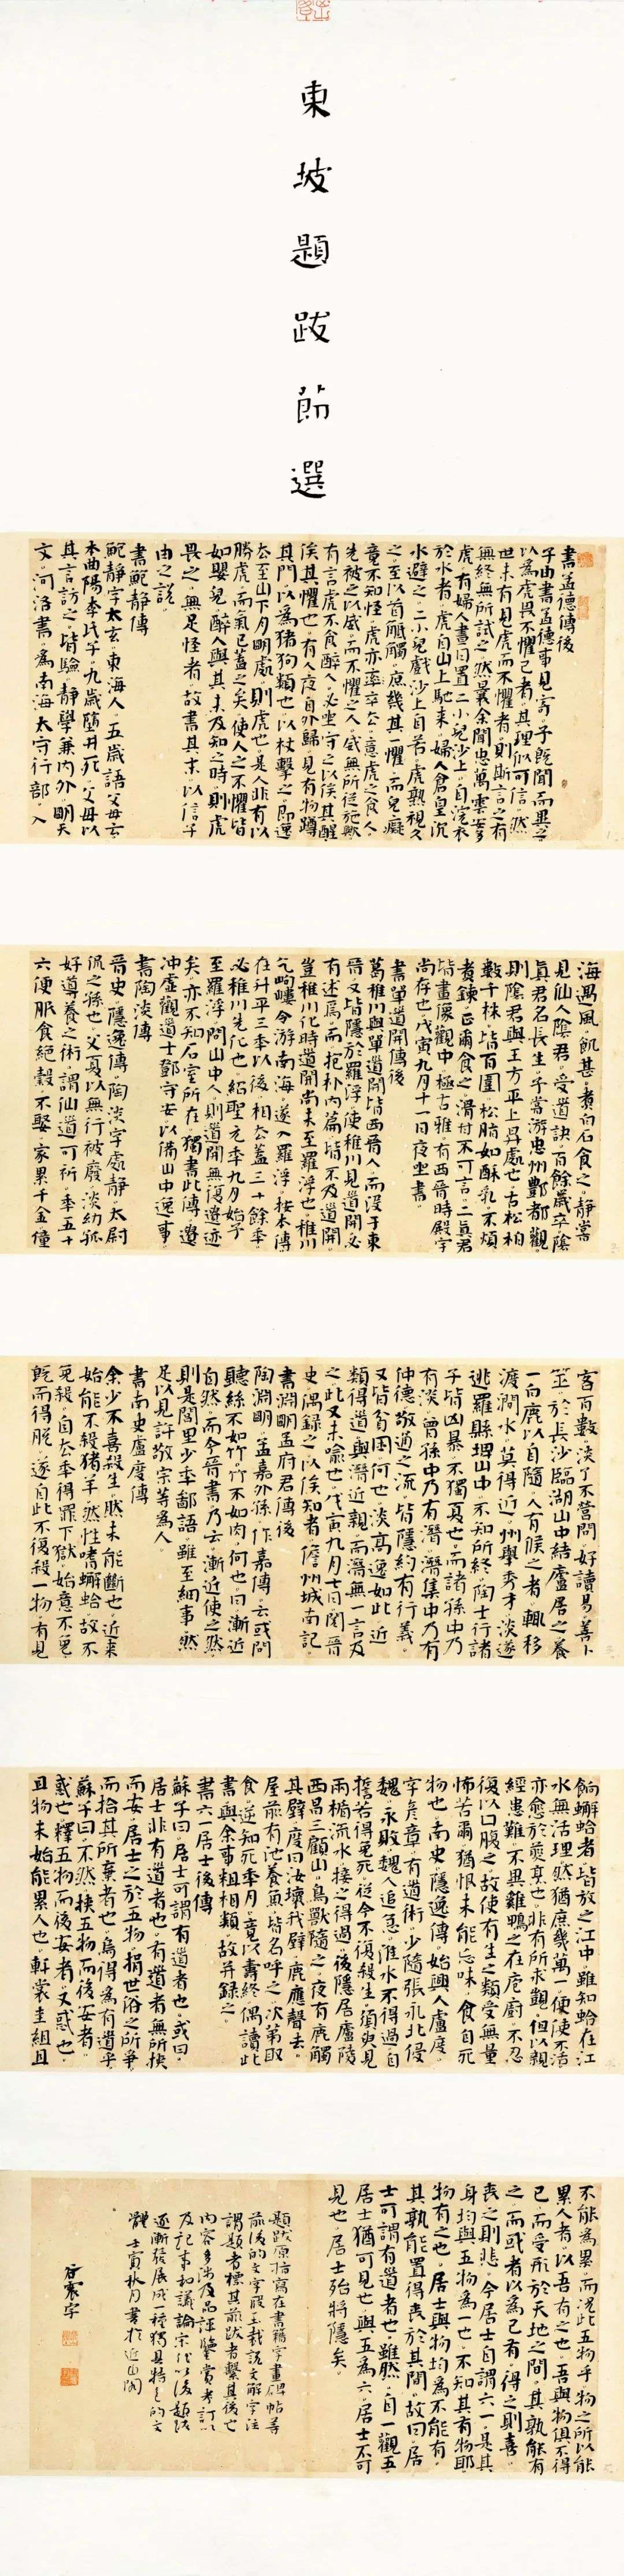 東坡題跋節選
書孟德傳後
子由書孟德事見寄。予既聞而異之
以為虎畏不懼己者。其理似可信。然
世未有見虎而不懼者。則斯言之有
無終無所試之。然曩余聞忠萬雲安多
虎。有婦人晝日置二小兒沙上。自浣衣
於水者。虎自山上馳來。婦人倉皇沉
水避之。二小兒戲沙上自若。虎熟視久
之至以首觝觸。庶幾其一懼。而兒癡
竟不知怪。虎亦卒去。意虎之食人。
先被之以威。而不懼之人。威無所從施歟
有言虎不食醉人。必坐守之。以俟其醒
俟其懼也。有人夜自外歸。見有物蹲
其門。以為猪狗類也。以杖擊之。即逸
去至山下月明處。則虎也。是人非有以
勝虎。而氣已蓋之矣。使人之不懼皆
如嬰兒醉人與其未及知之時。則虎
畏之。無足怪者。故書其末。以信子
由之説。
書鮑靜傳
鮑靜字太玄。東海人。五歲語父母云
本曲陽李氏子。九歲墮井死。父母以
其言訪之。皆驗。靜學兼內外。明天
文河洛書。為南海太守行部。入
海遇風。飢甚。煮白石食之。靜嘗
見仙人陰君。受道訣。百餘歲卒。陰
真君名長生。予嘗游忠州酆都觀
則陰君與王方平上昇處也。古松柏
數千株。皆百圍。松脂如酥乳。不煩
煮鍊。正爾食之。滑甘不可言。二真君
皆畫像觀中。極古雅。有西晉時殿宇
尚存也。戊寅九月十一日夜坐書。
書單道開傳後
葛稚川與單道開皆西晉人。而沒于東
晉。又皆隱於羅浮。使稚川見道開。必
有述焉。而抱朴內篇皆不及道開。
豈稚川化時道開尚未至羅浮也。稚川
乞岣嶁令。游南海。遂入羅浮。按本傳
在升平三年以後。相去蓋三十餘年。
必稚川先化也。紹聖元年九月始予
至羅浮。問山中人。則道開無復遺迹
矣。亦不知石室所在。獨書此傳。遺
冲虛觀道士鄧守安。以備山中逸事。
書陶淡傳
晉史隱逸傳。陶淡字處靜。太尉
侃之孫也。父夏。以無行被廢。淡幼孤
好導養之術。謂仙道可祈。年五十
六便服食絕穀。不娶。家累千金。僮
客百數。淡了不營問。好讀易。善卜
筮。於長沙臨湖山中結廬居之。養
一白鹿以自隨。人有候之者。輒移
渡澗水。莫得近。州舉秀才。淡遂
逃羅縣埤山中。不知所終。陶士行諸
子皆凶暴。不獨夏也。而諸孫中乃
有淡。曾孫中乃有潛。潛集中乃有
仲德敬通之流。皆隱約有行義。
又皆貧困。何也。淡高逸如此。近
類得道。與潛近親。而潛無一言及
之。此又未喻也。戊寅九月七日閱晉
史。偶錄之。以俟知者。儋州城南記。
書淵明孟府君傳後
陶淵明。孟嘉外孫。作嘉傳。云或問
聽絲不如竹。竹不如肉。何也。曰漸近
自然。而今晉書乃云。漸近使之然。
則是閭里少年鄙語。雖至細事。然
足以見許敬宗等為人
書南史盧度傳
余少不喜殺生。然未能斷也。近來
始能不殺猪羊。然性嗜蠏蛤。故不
免殺。自去年得罪下獄。始意不免。
既而得脫。遂自此不復殺一物。有見
餉蠏蛤者。皆放之江中。雖知蛤在江
水無活理。然猶庶幾萬一。便使不活
亦愈於煎烹也。非有所求覬。但以親
經患難。不異雞鴨之在庖廚。不忍
復以口腹之故。使有生之類。受無量
怖苦爾。猶恨未能忘味。食自死
物也。南史隱逸傳。始興人盧度。
字彥章。有道術。少隨張永北侵
魏。永敗。魏人追急。淮水不得過。自
誓若得免死。從今不復殺生。須臾見
兩楯流水。接之得過。後隱居廬陵
西昌三顧山。鳥獸隨之。夜有鹿觸
其壁。度曰汝壞我壁。鹿應聲去。
屋前有池養魚。皆名呼之。次第取
食。逆知死年月。竟以壽終。偶讀此
書。與余事粗相類。故并錄之。
書六一居士後傳
蘇子曰。居士可謂有道者也。或曰。
居士非有道者也。有道者無所挾
而安。居士之於五物。捐世俗之所爭
而拾其所棄者也。烏得為有道乎。
蘇子曰。不然。挾五物而後安者。
惑也。釋五物而後安者。又惑也。
且物未始能累人也。軒裳圭組。且
不能為累。而況此五物乎。物之所以能
累人者。以吾有之也。吾與物俱不得
已。而受形於天地之間。其孰能有
之。而或者以為己有。得之則喜。
喪之則悲。今居士自謂六一。是其
身均與五物為一也。不知其有物耶
物有之也。居士與物均為不能有。
其孰能置得喪於其間。故曰。居
士可謂有道者也。雖然。自一觀五
居士猶可見也。與五為六。居士不可
見也。居士殆將隱矣。
題跋原指寫在書籍字畫碑帖等
前後的文字。段玉裁説文解字注
謂題者標其前。跋者繫其後也
內容多涉及品評鑒賞考訂以
及記事和議論。宋代以後題跋
逐漸發展成一種獨具特色的文
體。壬寅秋月書於近山閣